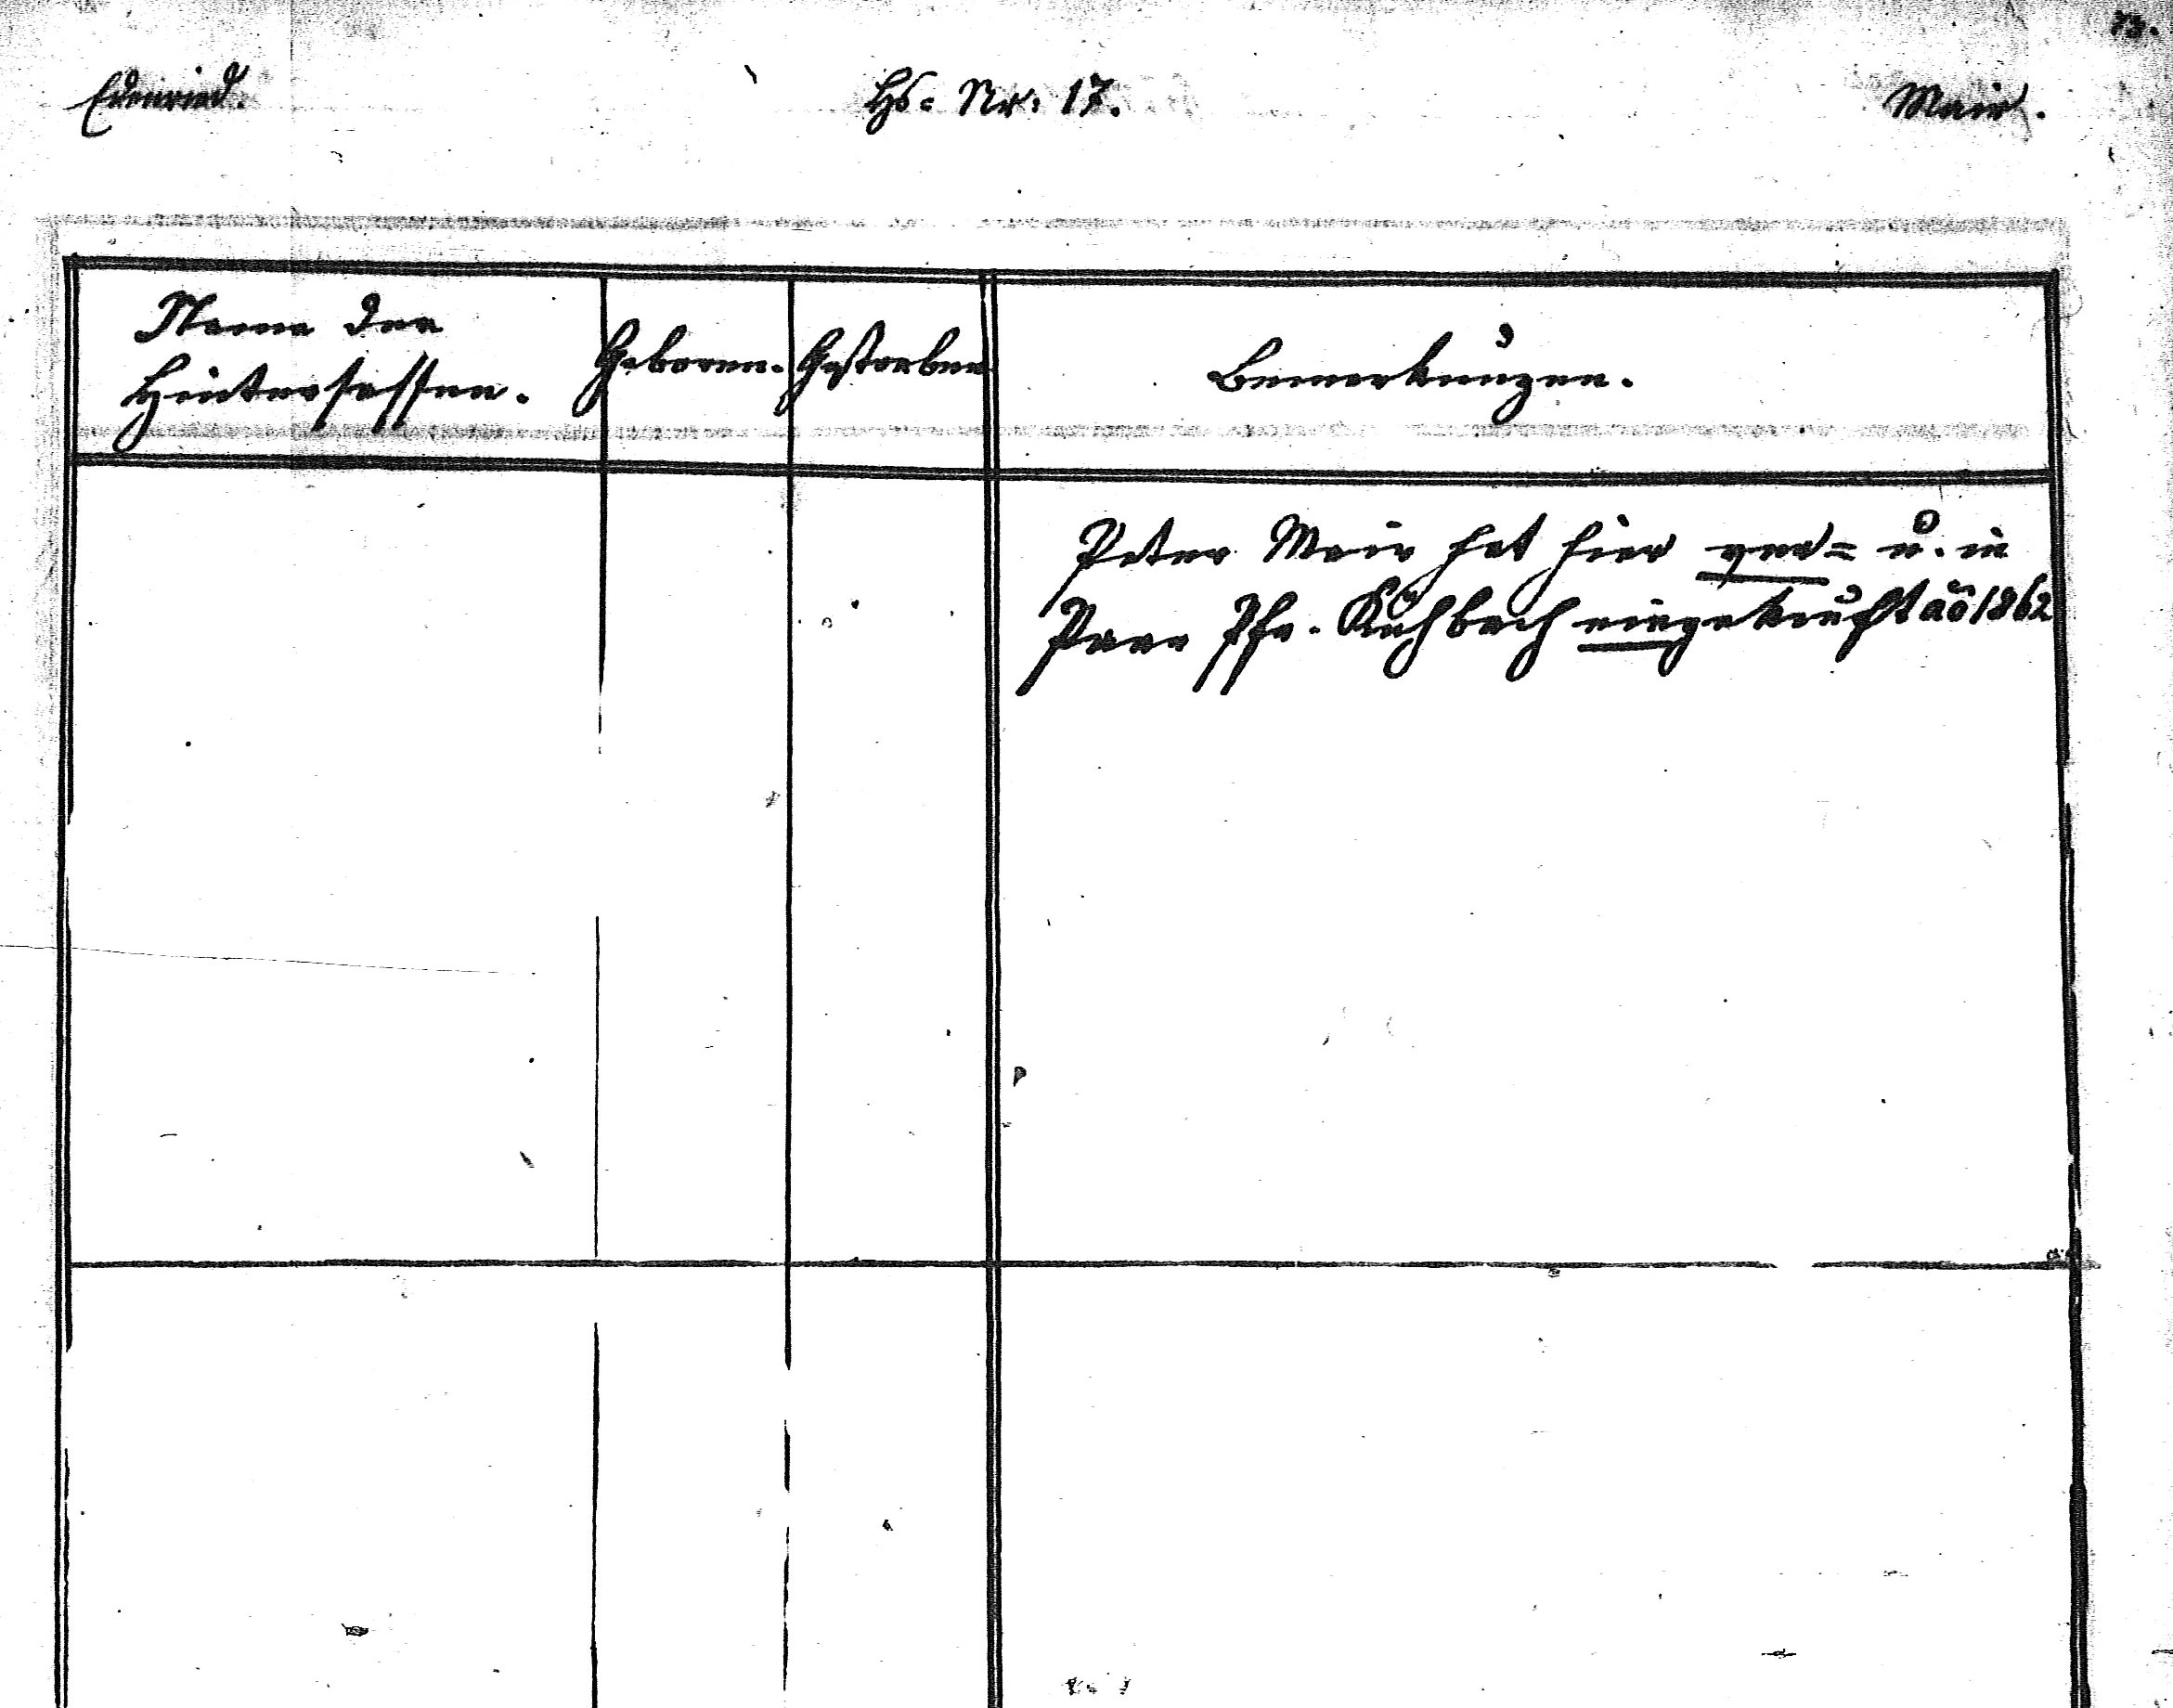 Edenried.
Hs= Nr: 17.
Mair.
Name der
Hintersassen.
Geboren.
Gestorben
Bemerkungen.
Peter Mair hat hier ver= u. in
Paar Pfr. Kühbach eingekauft aõ 1862